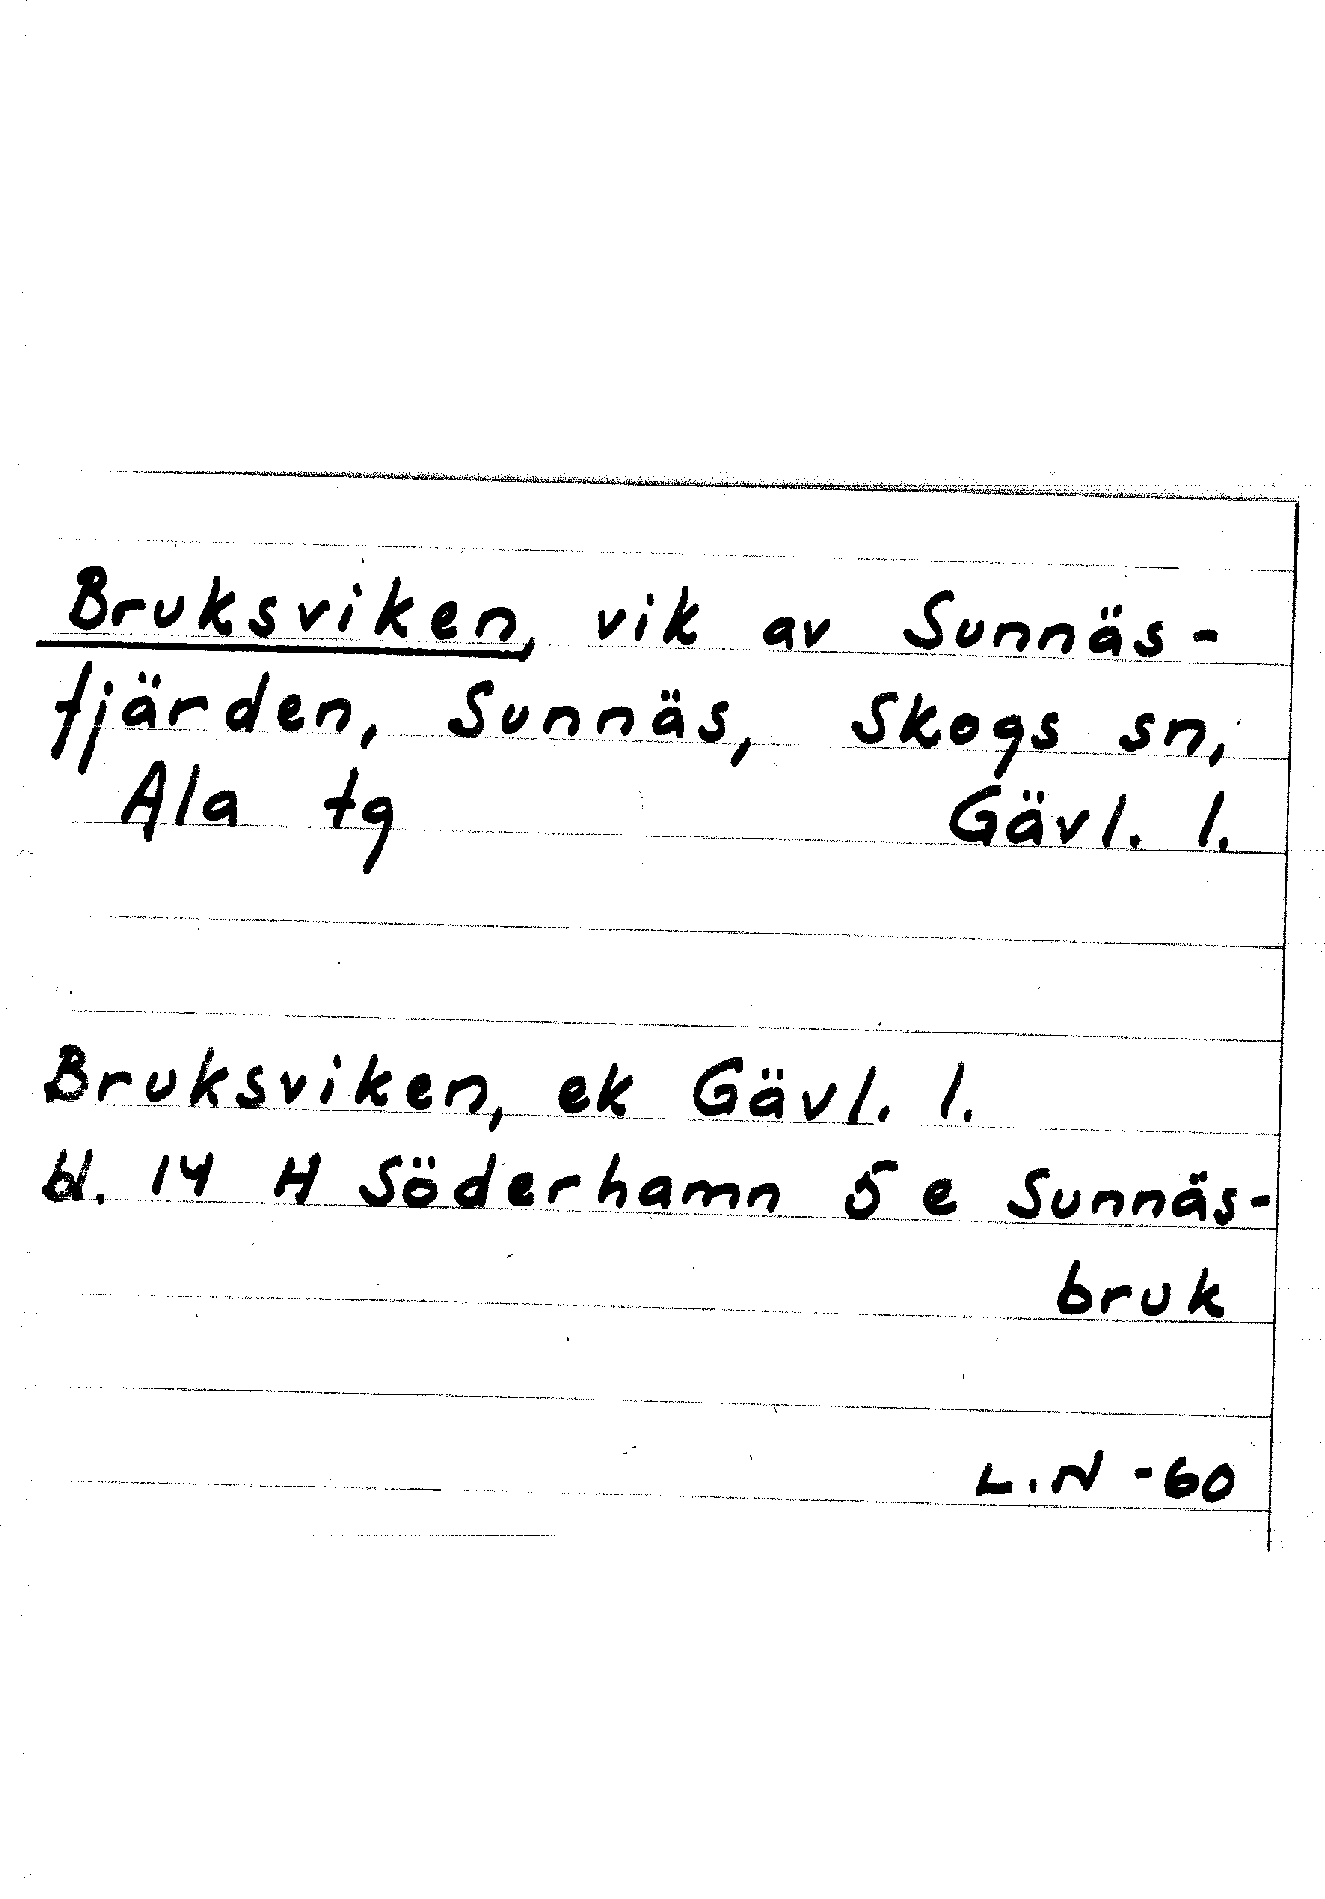 Bruksviken, vik av Sunnäs-
fjärden, Sunnäs, Skogs sn,
Ala tg Gävl. l.
Bruksviken, ek Gävl. l.
bl. 14 H Söderhamn 5 e Sunnäs-
bruk
L.N -60